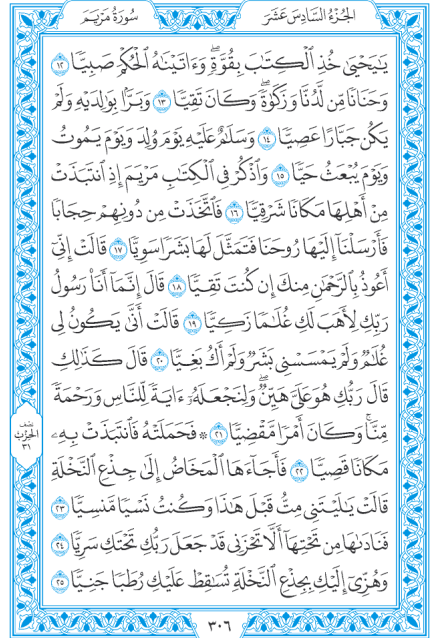 الجُزْءُ السَّادِسَ عَشَرَ
سُورَةُ مَرْيَمَ
يَٰيَحْيَىٰ خُذِ ٱلْكِتَٰبَ بِقُوَّةٍۖ وَءَاتَيْنَٰهُ ٱلْحُكْمَ صَبِيًّا ١٢
وَحَنَانًا مِّن لَّدُنَّا وَزَكَوٰةًۖ وَكَانَ تَقِيًّا ١٣ وَبَرًّۢا بِوَٰلِدَيْهِ وَلَمْ
يَكُن جَبَّارًا عَصِيًّا ١٤ وَسَلَٰمٌ عَلَيْهِ يَوْمَ وُلِدَ وَيَوْمَ يَمُوتُ
وَيَوْمَ يُبْعَثُ حَيًّا ١٥ وَٱذْكُرْ فِي ٱلْكِتَٰبِ مَرْيَمَ إِذِ ٱنتَبَذَتْ
مِنْ أَهْلِهَا مَكَانًا شَرْقِيًّا ١٦ فَٱتَّخَذَتْ مِن دُونِهِمْ حِجَابًا
فَأَرْسَلْنَآ إِلَيْهَا رُوحَنَا فَتَمَثَّلَ لَهَا بَشَرًا سَوِيًّا ١٧ قَالَتْ إِنِّيٓ
أَعُوذُ بِٱلرَّحْمَٰنِ مِنكَ إِن كُنتَ تَقِيًّا ١٨ قَالَ إِنَّمَآ أَنَا۠ رَسُولُ
رَبِّكِ لِأَهَبَ لَكِ غُلَٰمًا زَكِيًّا ١٩ قَالَتْ أَنَّىٰ يَكُونُ لِي
غُلَٰمٌ وَلَمْ يَمْسَسْنِي بَشَرٌ وَلَمْ أَكُ بَغِيًّا ٢٠ قَالَ كَذَٰلِكِ
قَالَ رَبُّكِ هُوَ عَلَيَّ هَيِّنٌۖ وَلِنَجْعَلَهُۥٓ ءَايَةً لِّلنَّاسِ وَرَحْمَةً
مِّنَّاۚ وَكَانَ أَمْرًا مَّقْضِيًّا ٢١ ۞ فَحَمَلَتْهُ فَٱنتَبَذَتْ بِهِۦ
مَكَانًا قَصِيًّا ٢٢ فَأَجَآءَهَا ٱلْمَخَاضُ إِلَىٰ جِذْعِ ٱلنَّخْلَةِ
قَالَتْ يَٰلَيْتَنِي مِتُّ قَبْلَ هَٰذَا وَكُنتُ نَسْيًا مَّنسِيًّا ٢٣
فَنَادَىٰهَا مِن تَحْتِهَآ أَلَّا تَحْزَنِي قَدْ جَعَلَ رَبُّكِ تَحْتَكِ سَرِيًّا ٢٤
وَهُزِّيٓ إِلَيْكِ بِجِذْعِ ٱلنَّخْلَةِ تُسَٰقِطْ عَلَيْكِ رُطَبًا جَنِيًّا ٢٥
نصف
الحزب
٣١
٣٠٦